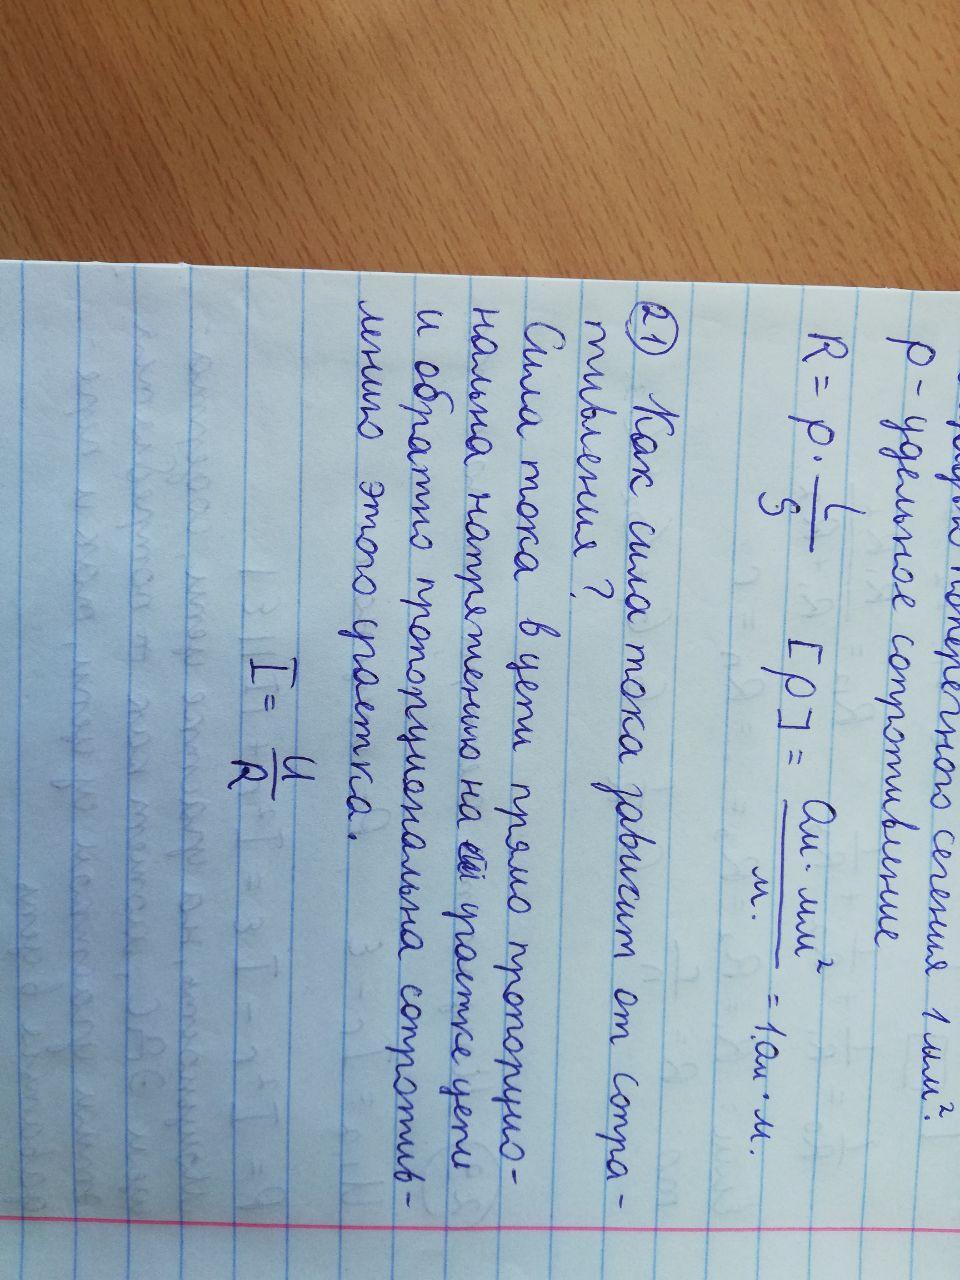 поперечного сечения 1 мм².
ρ - удельное сопротивление
R = ρ · l/S [ρ] = Ом · мм²/м. = 1.Ом · м.
21 Как сила тока зависит от сопра-
тивления?
Сила тока в цепи прямо пропорцио-
нальна напряжению на участке цепи
и обратно пропорциональна сопротив-
лению этого участка.
I = U/R